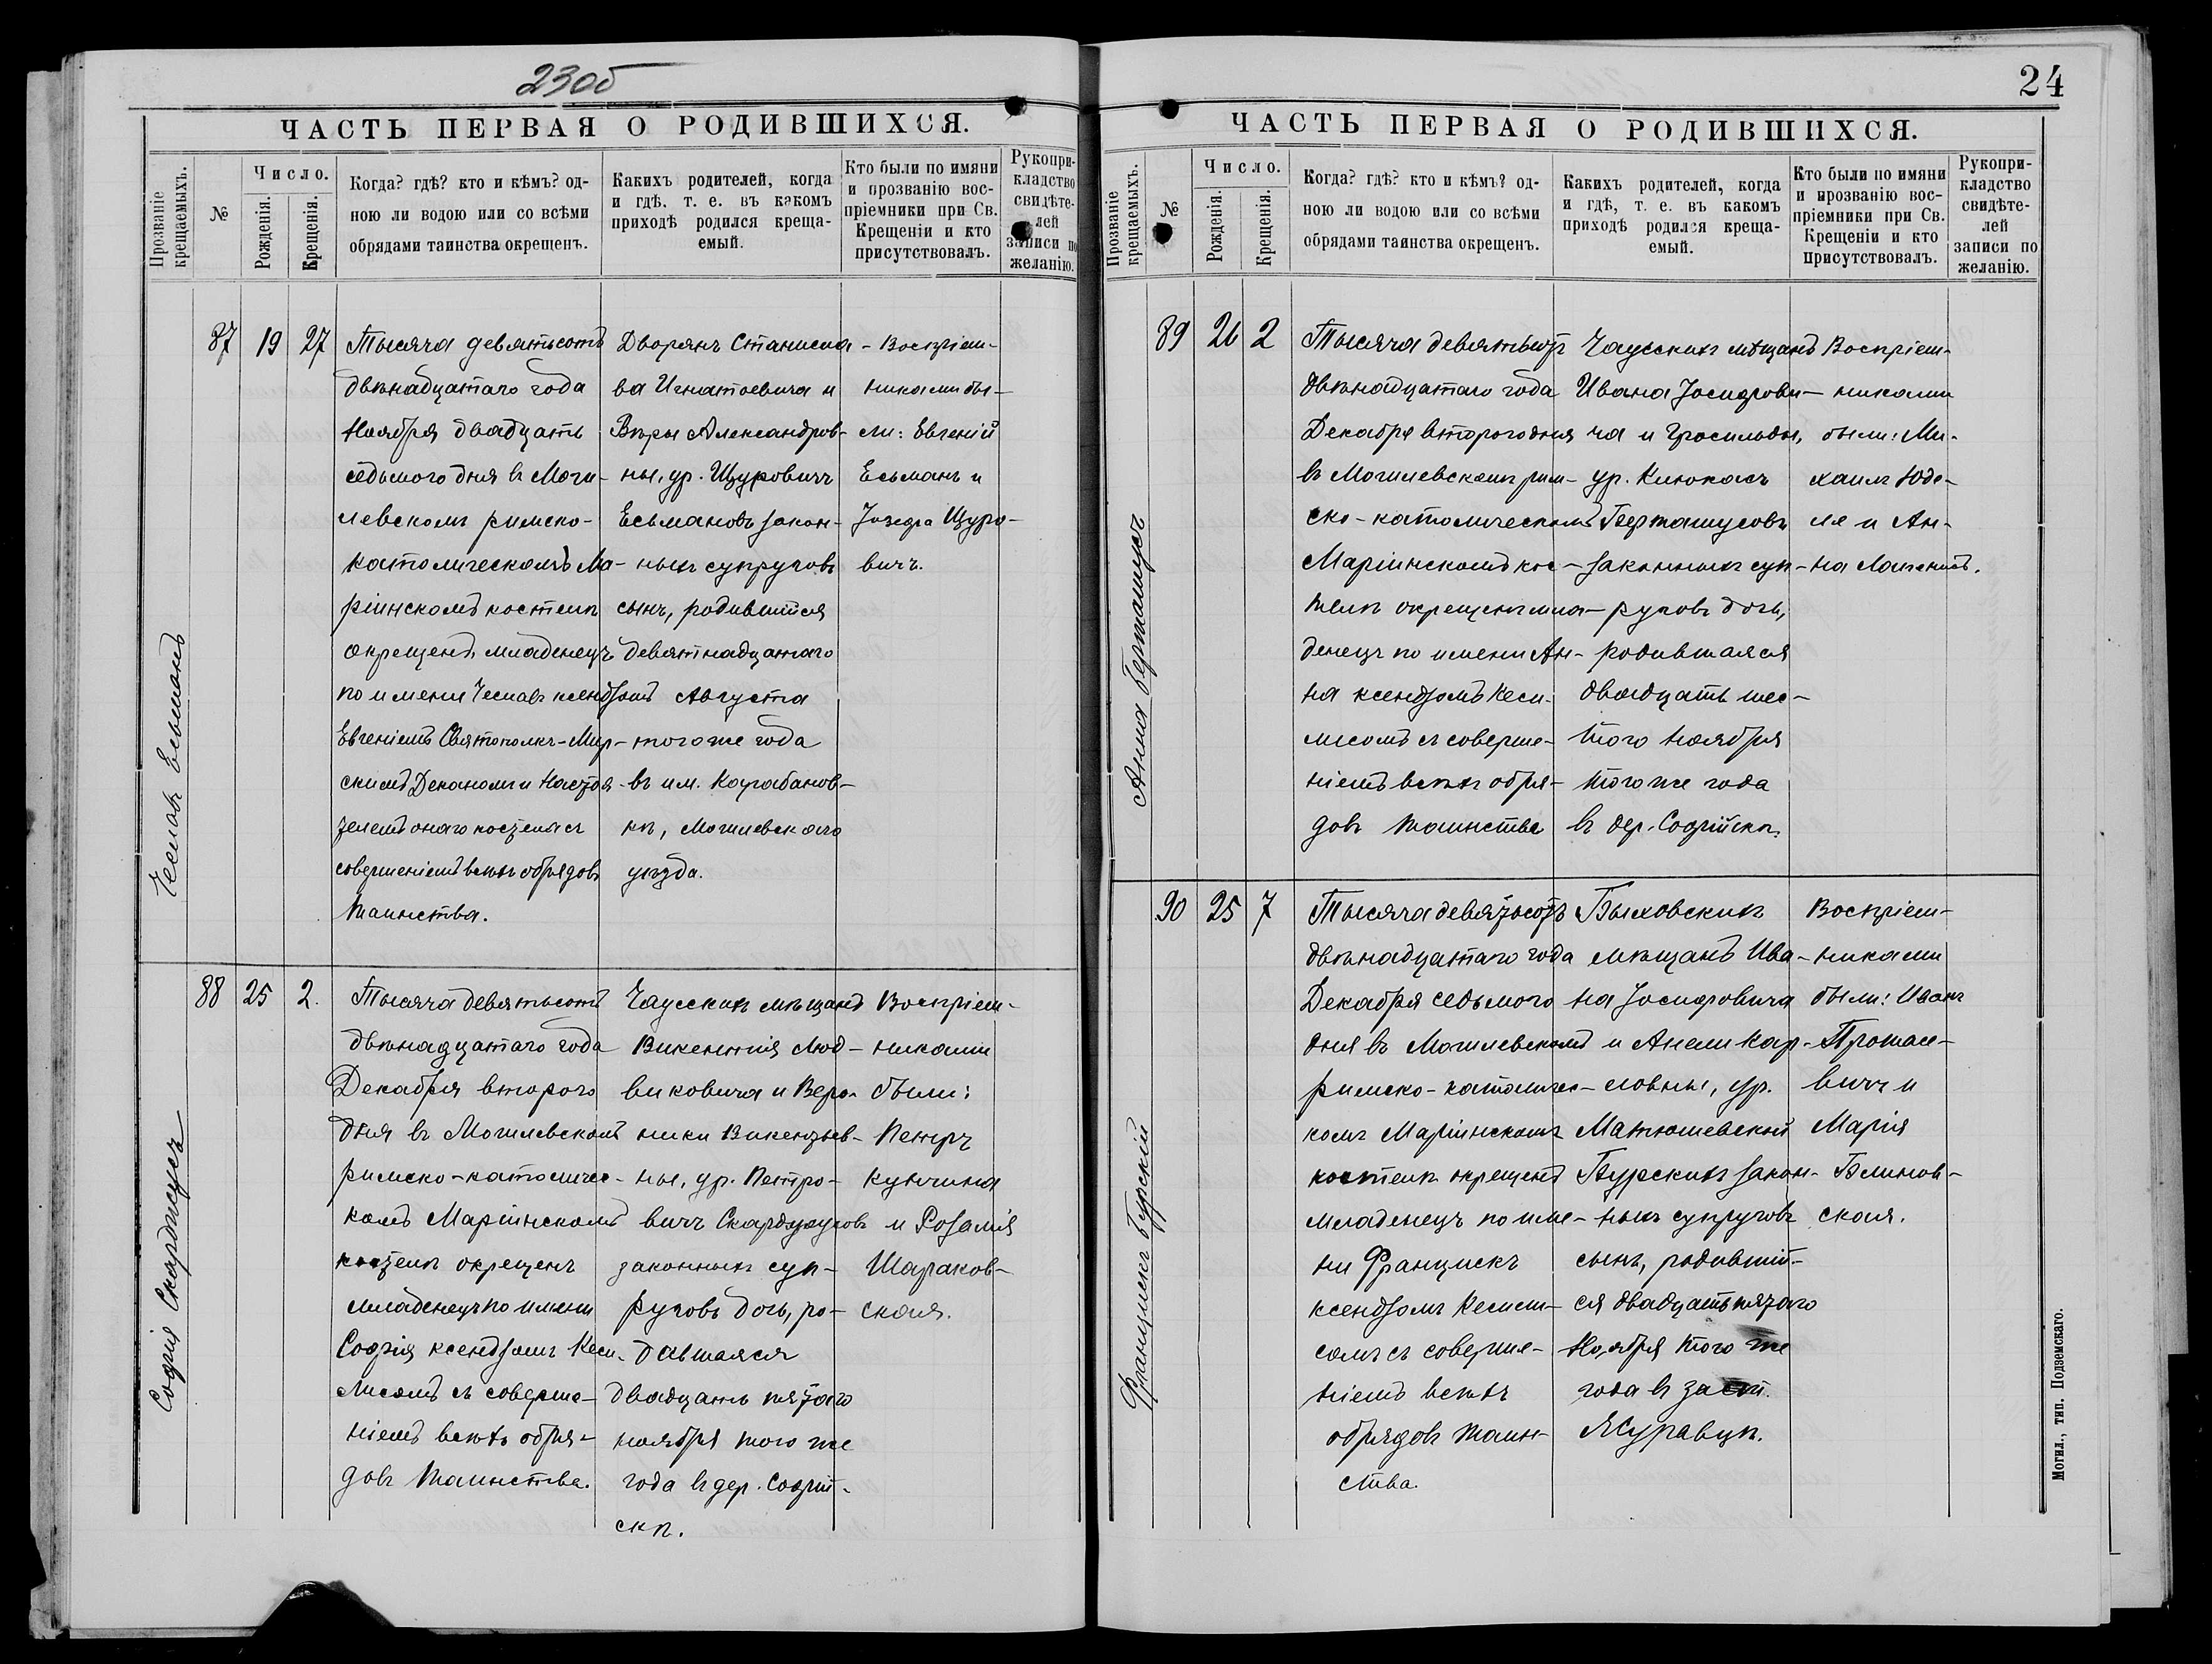 23об
ЧАСТЬ ПЕРВАЯ О РОДИВШИХСЯ.
Прозваніе крещаемыхъ.
№
Число.
Рожденія.
Крещенія.
Когда? гдѣ? кто и кѣмъ? од-
ною ли водою или со всѣми
обрядами таинства окрещенъ.
Какихъ родителей, когда
и гдѣ, т. е. въ какомъ
приходѣ родился креща-
емый.
Кто были по имяни
и прозванію вос-
пріемники при Св.
Крещеніи и кто
присутствовалъ.
Рукопри-
кладство
свидѣте-
лей
записи по
желанію.
Чеславъ Есьманъ
87
19
27
Тысяча девятьсотъ
двѣнадцатаго года
Ноября двадцать
седьмого дня въ Моги-
левскомъ римско-
католическомъ Ма-
ріинскомъ костелѣ
окрещенъ младенецъ
по имени Чеславъ ксендзомъ
Евгеніемъ Святополкъ-Мир-
скимъ Деканомъ и Настоя-
телемъ онаго костела съ
совершеніемъ всѣхъ обрядовъ
таинства.
Дворянъ Станисла-
ва Игнатьевича и
Вѣры Александров-
ны, ур. Щуровичъ
Есьмановъ закон-
ныхъ супруговъ
сынъ, родившійся
девятнадцатаго
Августа
того же года
въ им. Карабанов-
кѣ, Могилевскаго
уѣзда.
Воспріем-
никами бы-
ли: Евгеній
Есьманъ и
Іозефа Щуро-
вичъ.
Софія Скарджусъ
88
25
2.
Тысяча девятьсотъ
двѣнадцатаго года
Декабря второго
дня въ Могилевскомъ
римско-католичес-
комъ Маріинскомъ
костелѣ окрещенъ
младенецъ по имени
Софія ксендзомъ Кеси-
лисомъ съ соверше-
ніемъ всѣхъ обря-
довъ таинства.
Чаусскихъ мѣщанъ
Викентія Люд-
виковича и Веро-
ники Викентьев-
ны, ур. Петро-
вичъ Скарджусовъ
законныхъ суп-
руговъ дочь, ро-
дившаяся
двадцать пятаго
ноября того же
года въ дер. Софій-
скѣ.
Воспріем-
никами
были:
Петръ
Кунчина
и Розалія
Шараков-
ская.
24
ЧАСТЬ ПЕРВАЯ О РОДИВШИХСЯ.
Прозваніе крещаемыхъ.
№
Число.
Рожденія.
Крещенія.
Когда? гдѣ? кто и кѣмъ? од-
ною ли водою или со всѣми
обрядами таинства окрещенъ.
Какихъ родителей, когда
и гдѣ, т. е. въ какомъ
приходѣ родился креща-
емый.
Кто были по имяни
и прозванію вос-
пріемники при Св.
Крещеніи и кто
присутствовалъ.
Рукопри-
кладство
свидѣте-
лей
записи по
желанію.
Анна Берташусъ
89
26
2
Тысяча девятьсотъ
двѣнадцатаго года
Декабря второго дня
въ Могилевскомъ рим-
ско-католическомъ
Маріинскомъ кос-
телѣ окрещенъ мла-
денецъ по имени Ан-
на ксендзомъ Кеси-
лисомъ съ соверше-
ніемъ всѣхъ обря-
довъ таинства
Чаусскихъ мѣщанъ
Ивана Іосифови-
ча и
ур. Клюкасъ
Берташусовъ
законныхъ суп-
руговъ дочь,
родившаяся
двадцать шес-
того ноября
того же года
въ дер. Софійскѣ.
Воспріем-
никами
были: Ми-
хаилъ Юде-
ля и Ан-
на
Францискъ Бурскій
90
25
7
Тысяча девятьсотъ
двѣнадцатаго года
Декабря седьмого
дня въ Могилевскомъ
римско-католичес-
комъ Маріинскомъ
костелѣ окрещенъ
младенецъ по име-
ни Францискъ
ксендзомъ Кесили-
сомъ съ соверше-
ніемъ всѣхъ
обрядовъ таин-
ства.
Быховскихъ
мѣщанъ Ива-
на Іосифовича
и Анели Кар-
ловны, ур.
Матюшевской
Бурскихъ закон-
ныхъ супруговъ
сынъ, родившій-
ся двадцать пятаго
Ноября того же
года въ заст.
Журавцѣ.
Воспріем-
никами
были: Иванъ
Протасе-
вичъ и
Марія
Блинов-
ская.
Могил., тип. Подземскаго.